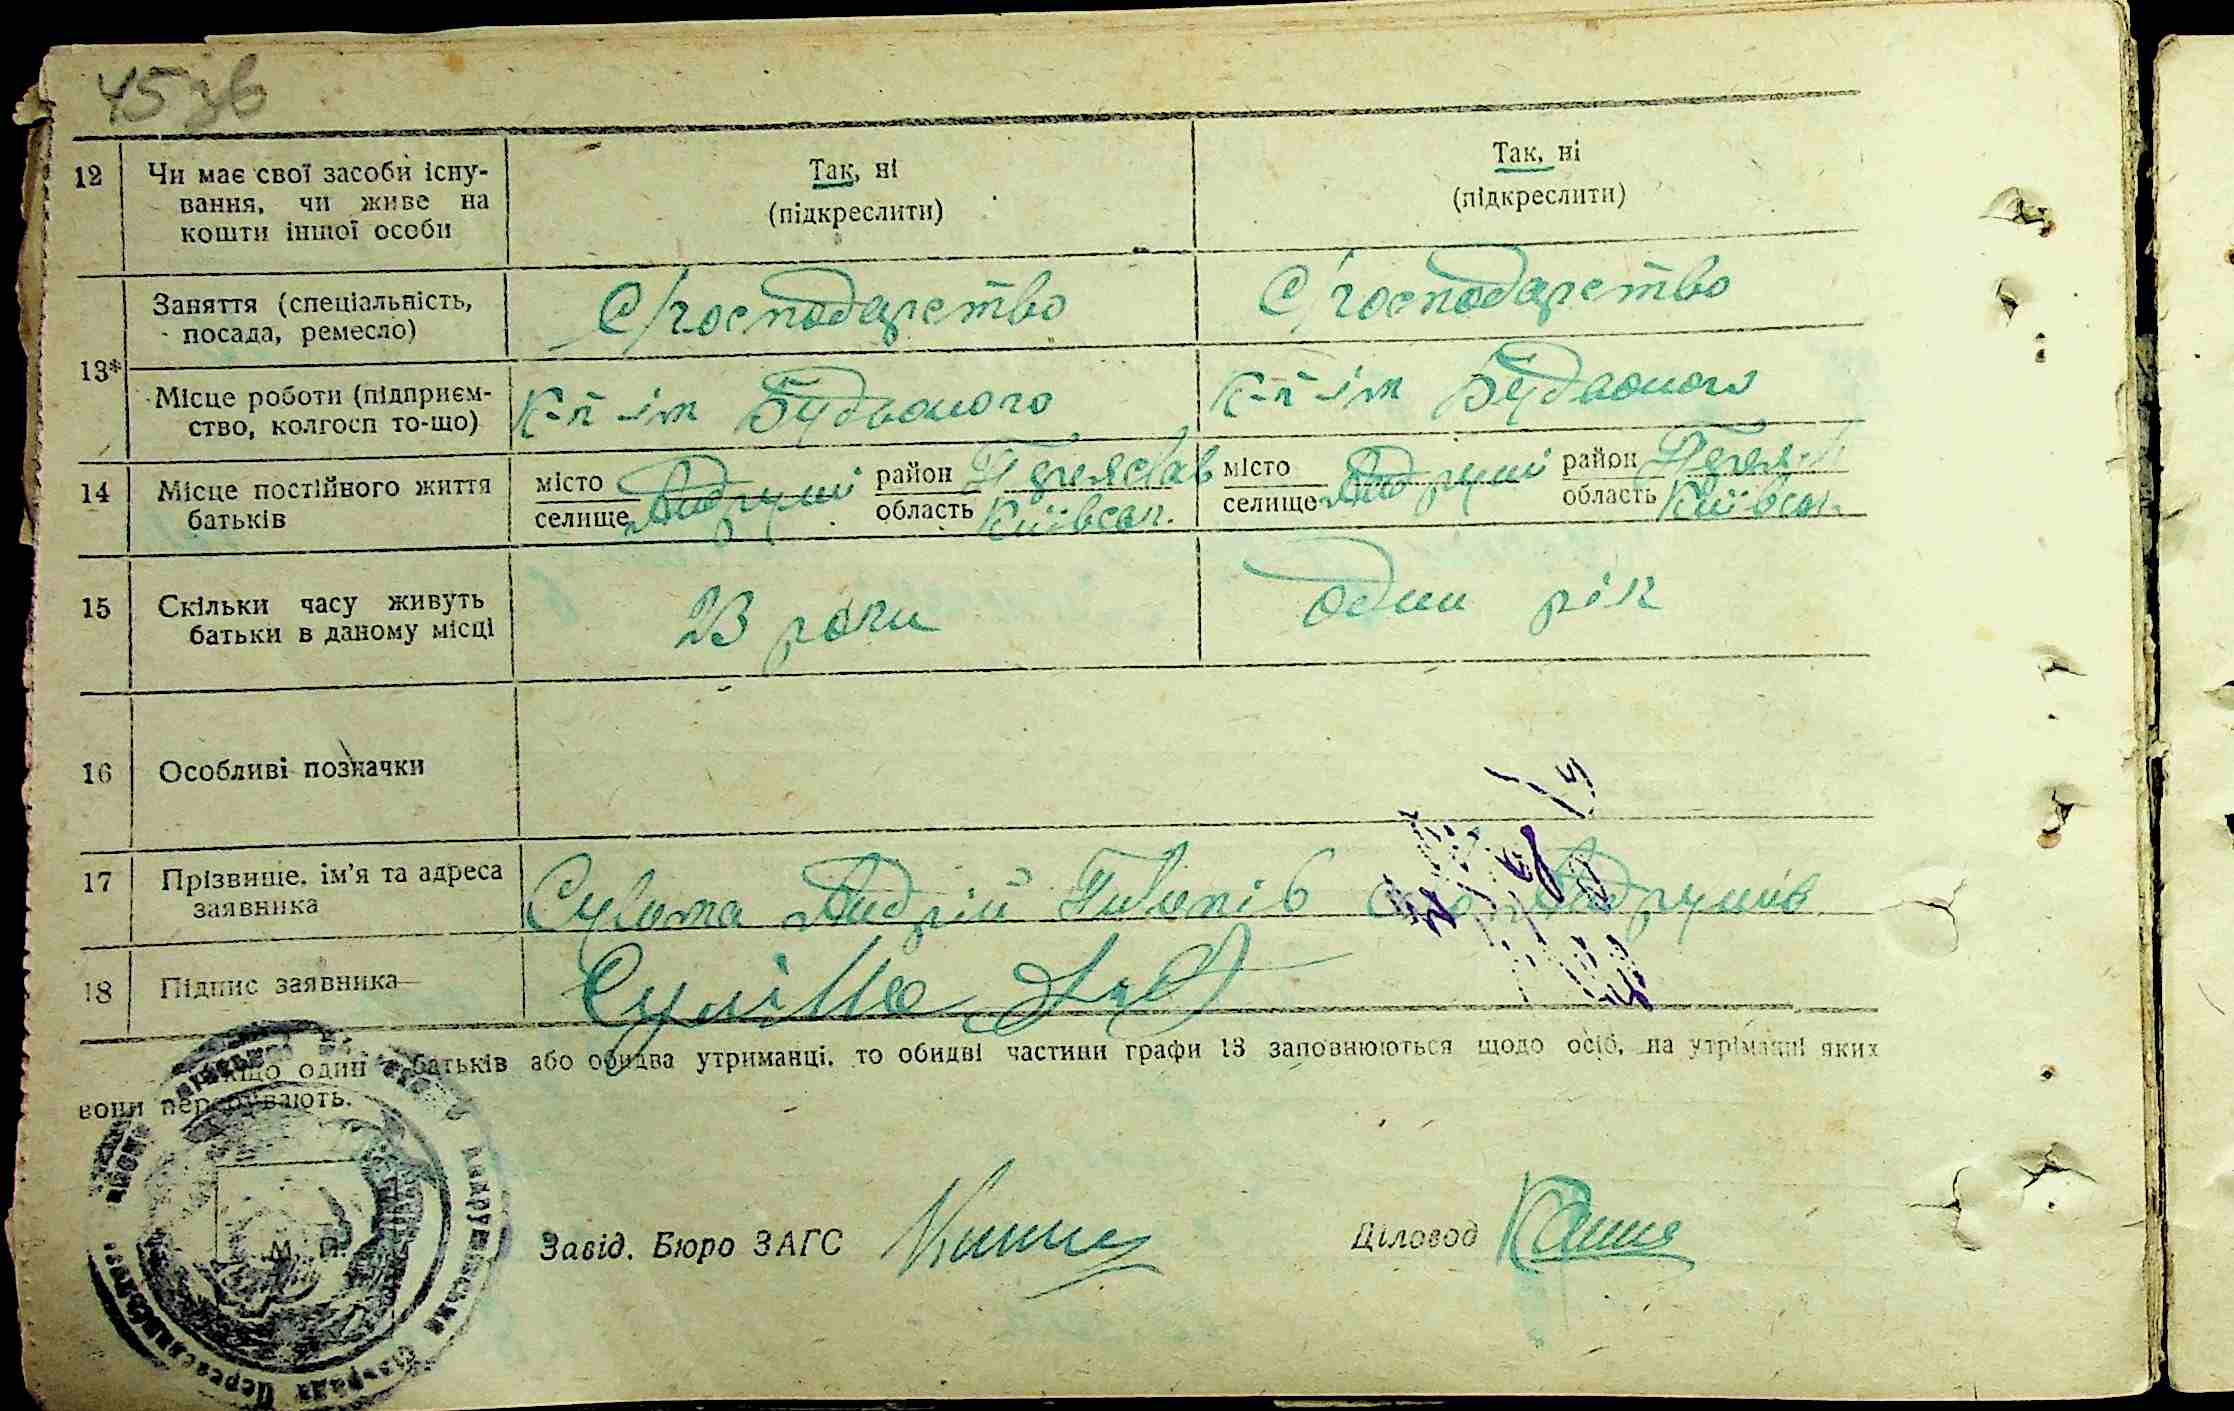 45 зв
12 Чи має свої засоби існу-
вання, чи живе на
кошти іншої особи
Так, ні
(підкреслити)
Так, ні
(підкреслити)
13*
Заняття (спеціальність,
посада, ремесло)
С/господарство
С/господарство
Місце роботи (підприєм-
ство, колгосп то-що)
к-п ім Будьоного
к-п ім Будьоного
14 Місце постійного життя
батьків
місто
селище Андруші
район Переяслав
область Київськ.
місто
селище Андруші
район
область Київськ.
15 Скільки часу живуть
батьки в даному місці
23 роки
один рік
16 Особливі позначки
17 Прізвище, ім'я та адреса
заявника
Андрій Андрушів
18 Підпис заявника
один батьків або обидва утриманці, то обидві частини графи 13 заповнюються щодо осіб, на утриманні яких
вони перебувають.
М. П.
Завід. Бюро ЗАГС
Діловод